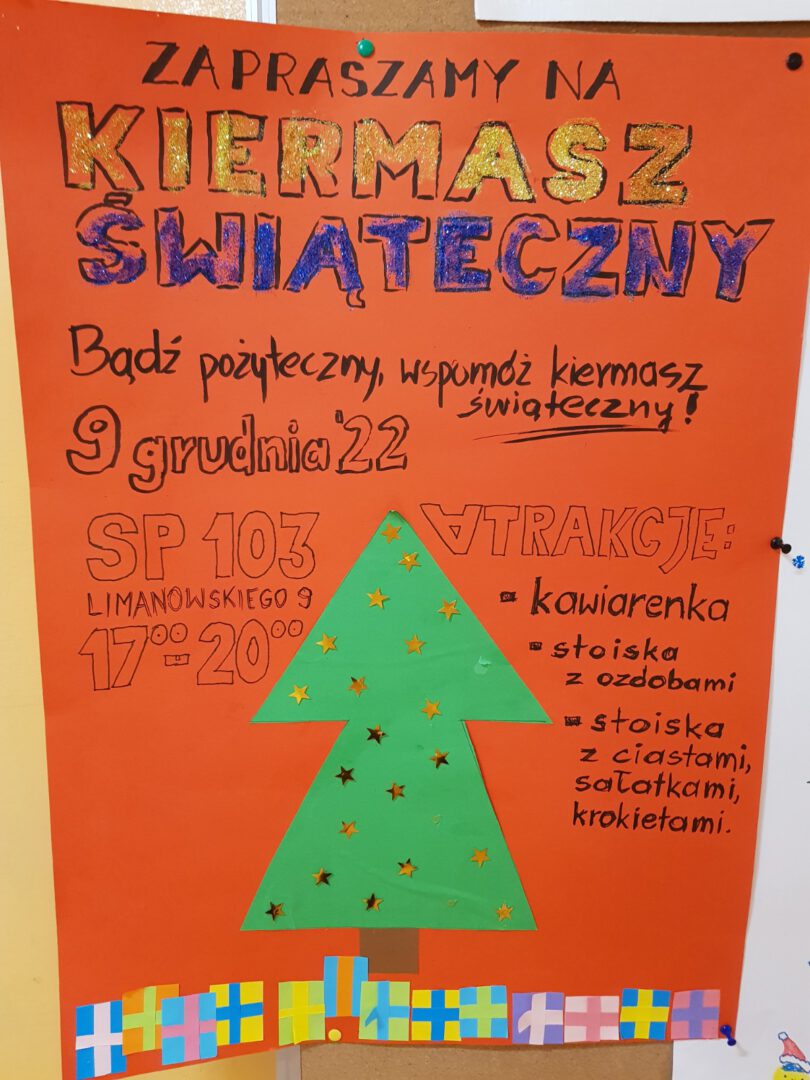 ZAPRASZAMY NA
KIERMASZ
ŚWIĄTECZNY
Bądź pożyteczny, wspomóż kiermasz
świąteczny!
9 grudnia '22
SP 103
LIMANOWSKIEGO 9
17⁰⁰-20⁰⁰
ATRAKCJE:
- kawiarenka
- stoiska
z ozdobami
- stoiska
z ciastami,
sałatkami,
krokietami.